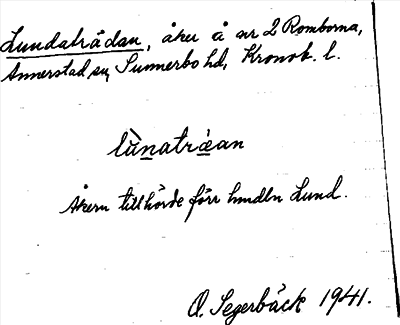 Lundaträdan, åker å nr 2 Romborna,
Annerstad sn, Sunnerbo hd, Kronob. l.
lùnatræ̀an
Åkern tillhörde förr hmdln Lund.
O. Segerbäck 1941.